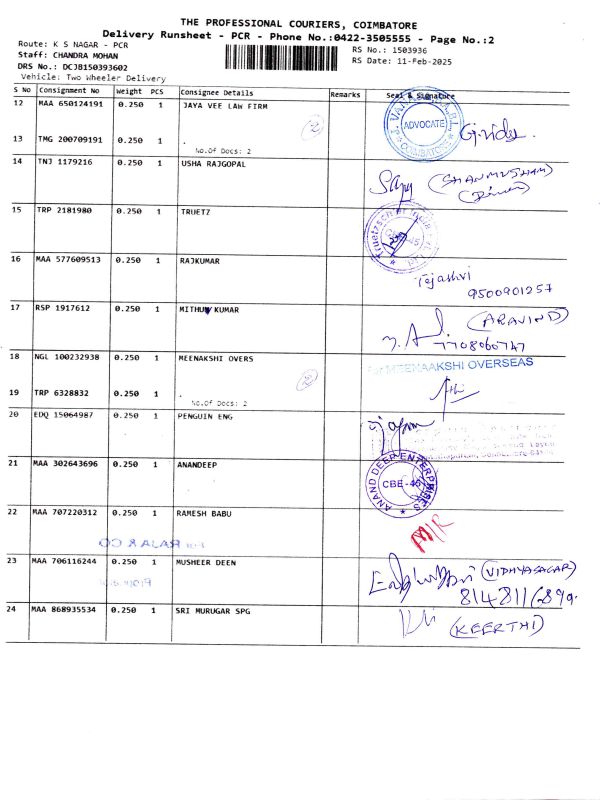 THE PROFESSIONAL COURIERS, COIMBATORE
Delivery Runsheet - PCR - Phone No.:0422-3505555 - Page No.:2
Route: K S NAGAR - PCR
RS No.: 1503936
Staff: CHANDRA MOHAN
RS Date: 11-Feb-2025
DRS No.: DCJB150393602
Vehicle: Two Wheeler Delivery
S No Consignment No Weight PCS Consignee Details Remarks Seal & Signature
12 MAA 650124191 0.250 1 JAYA VEE LAW FIRM
ADVOCATE
COIMBATORE
13 TMG 200709191 0.250 1 .
No.Of Docs: 2
14 TNJ 1179216 0.250 1 USHA RAJGOPAL
(SHANMUGHAM)
15 TRP 2181980 0.250 1 TRUETZ
16 MAA 577609513 0.250 1 RAJKUMAR
Tejashri
9500901257
17 RSP 1917612 0.250 1 MITHUN KUMAR
(ARAVIND)
7708060747
18 NGL 100232938 0.250 1 MEENAKSHI OVERS
for MEENAAKSHI OVERSEAS
19 TRP 6328832 0.250 1 .
No.Of Docs: 2
20 EDQ 15064987 0.250 1 PENGUIN ENG
21 MAA 302643696 0.250 1 ANANDEEP
ANAND DEEP ENTERPRISES
CBE-45
22 MAA 707220312 0.250 1 RAMESH BABU
23 MAA 706116244 0.250 1 MUSHEER DEEN
(VIDHYASAGAR)
24 MAA 868935534 0.250 1 SRI MURUGAR SPG
(KEERTHI)